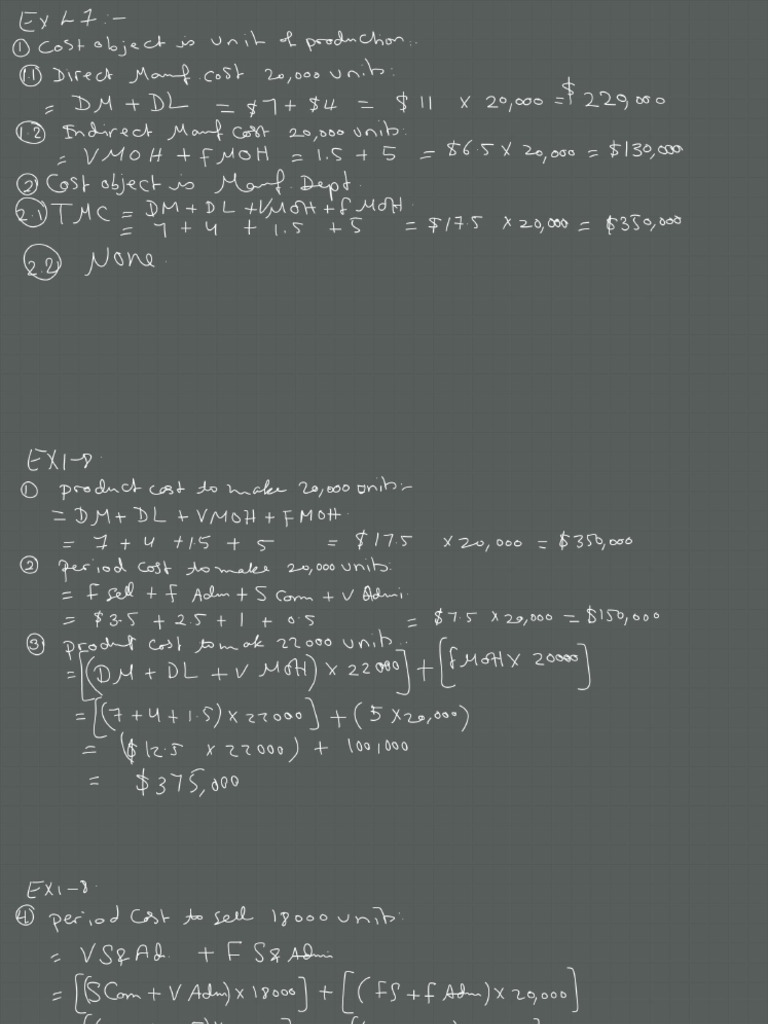 Ex 1-7 :-
① Cost object is unit of production.
1.1 Direct Manf cost 20,000 units:
= DM + DL = $7 + $4 = $11 x 20,000 = $220,000
1.2 Indirect Manf Cost 20,000 units:
= VMOH + FMOH = 1.5 + 5 = $6.5 x 20,000 = $130,000
② Cost object is Manf. Dept.
2.1 TMC = DM + DL + VMOH + FMOH.
= 7 + 4 + 1.5 + 5 = $17.5 x 20,000 = $350,000
2.2 None.
EX1-8.
① product cost to make 20,000 units:-
= DM + DL + VMOH + FMOH.
= 7 + 4 + 15 + 5 = $17.5 x 20,000 = $350,000
② period cost to make 20,000 units:
= F sell + F Adm + S Com + V Admi.
= $3.5 + 2.5 + 1 + 0.5 = $7.5 x 20,000 = $150,000
③ product cost to mak 22000 units.
= [(DM + DL + V MOH) x 22000] + [FMOH x 20000]
= [(7 + 4 + 1.5) x 22000] + (5 x 20,000)
= ($12.5 x 22000) + 100,000
= $375,000
EX1-8.
④ period Cost to sell 18000 units:
= VS&Ad. + F S& Admi
= [(SCom + V Adm) x 18000] + [(FS + F Adm) x 20,000]